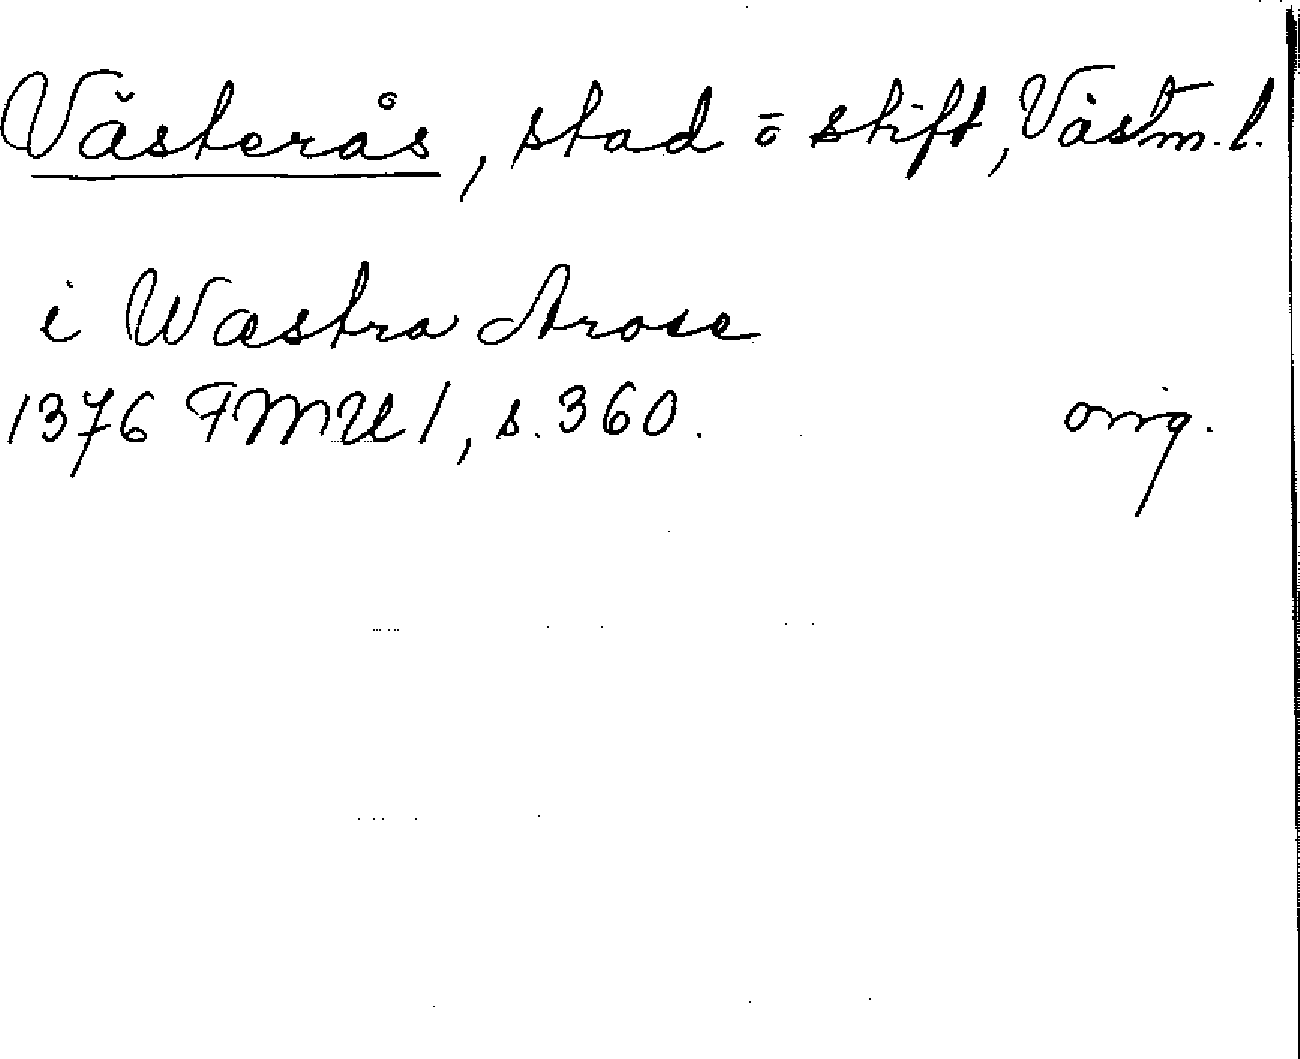 Västerås, stad o stift, Västm. l.
i Wæstra Arose
1376 FMU 1, s. 360. orig.